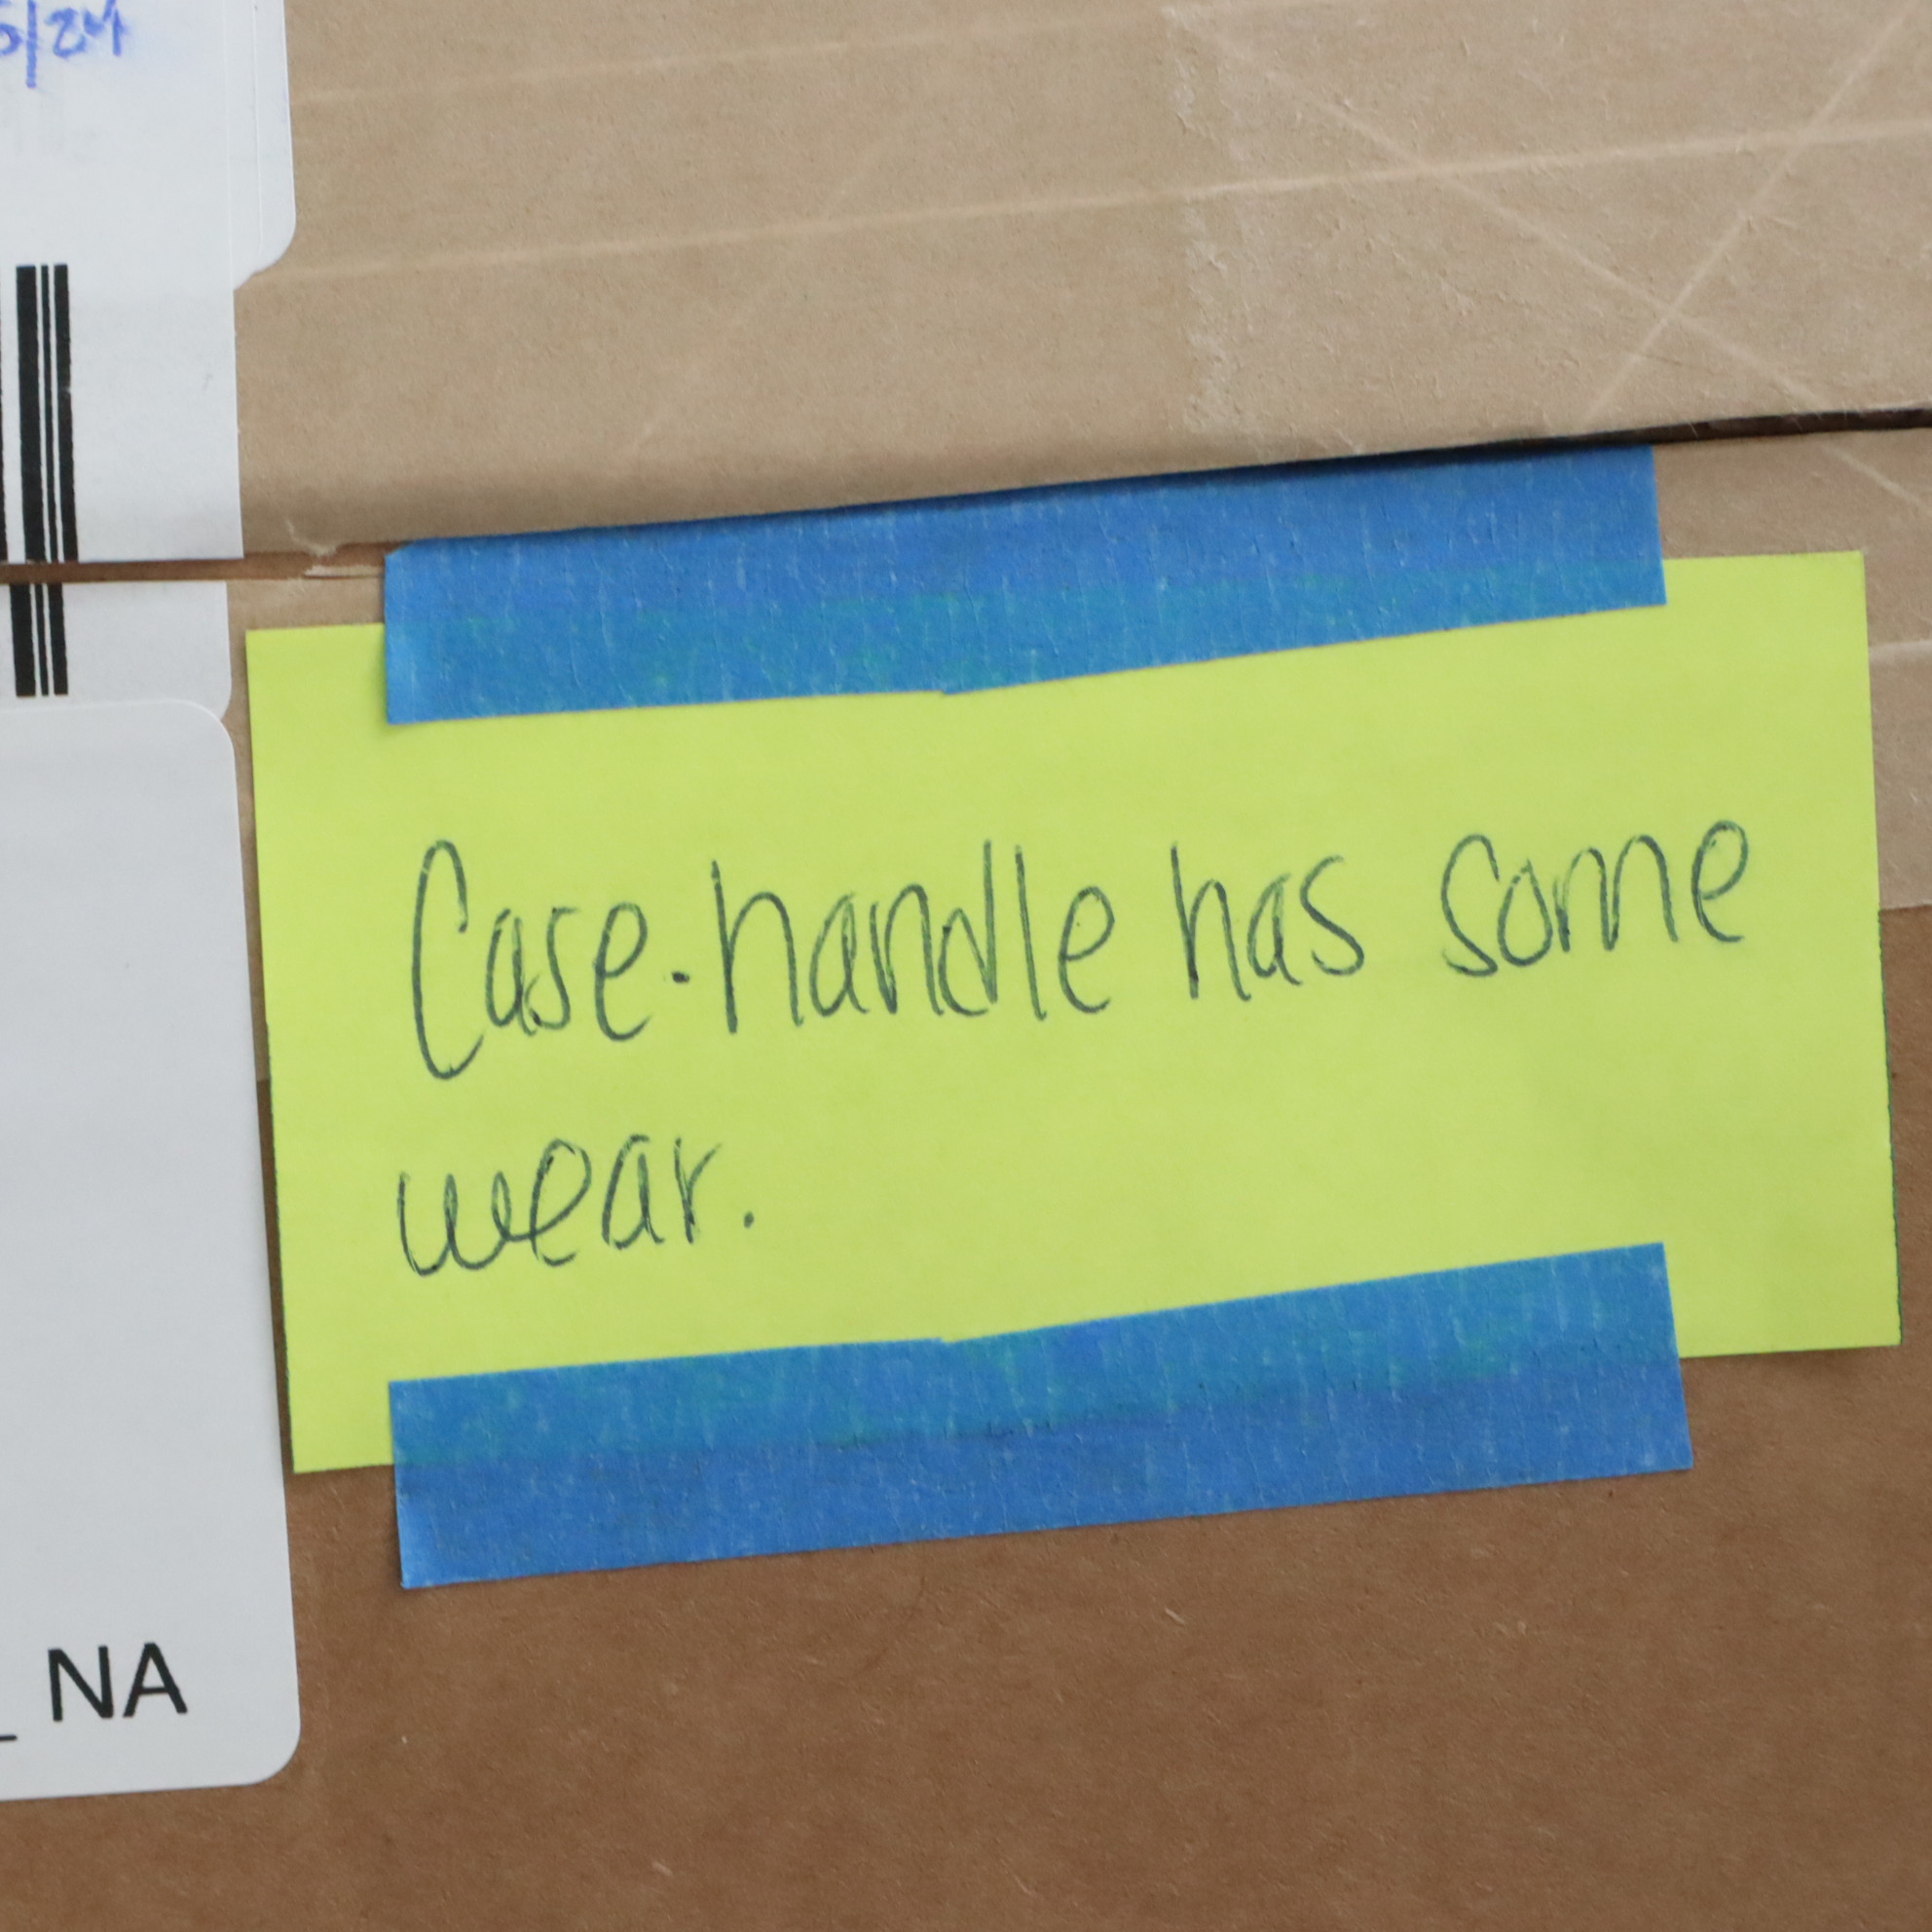 5/24
Case-handle has some
wear.
NA